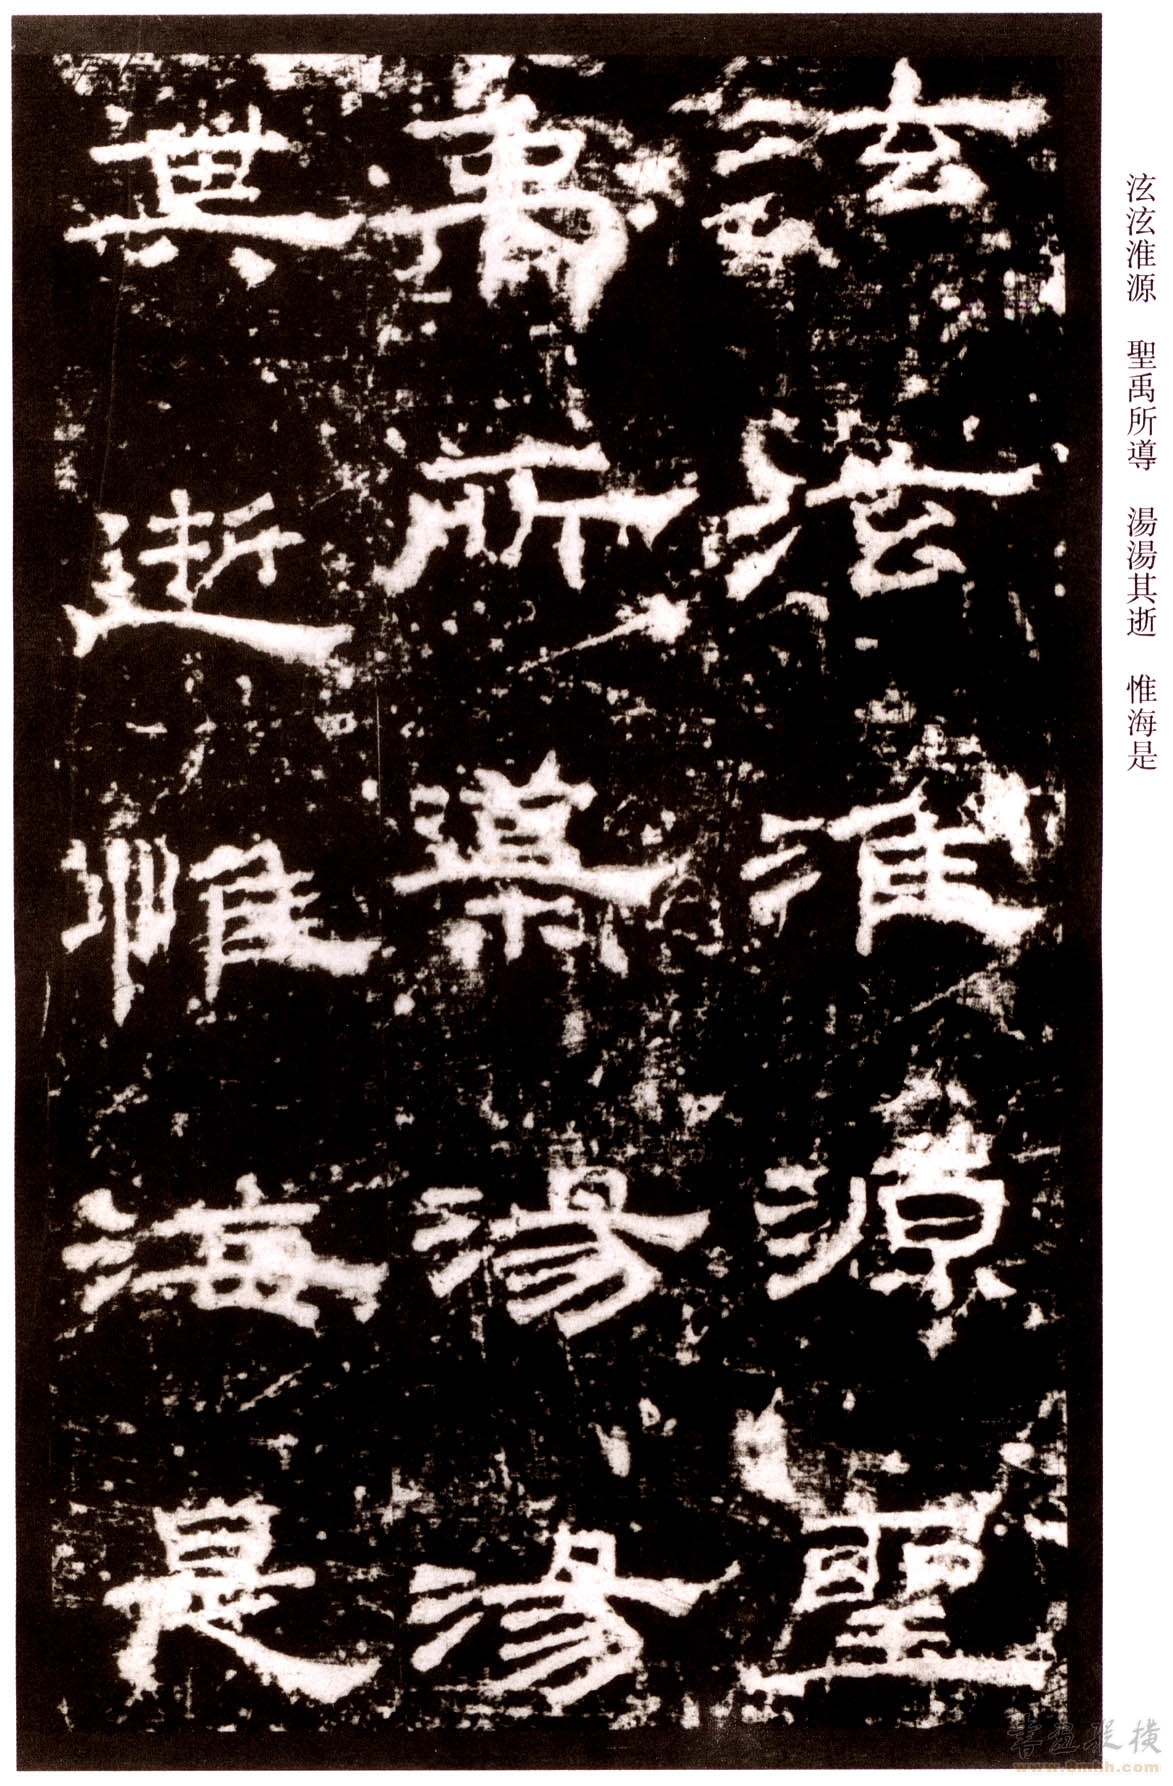 泫泫淮源 聖禹所導 湯湯其逝 惟海是
泫泫淮源聖
禹所導湯湯
其逝惟海是
書画縱橫